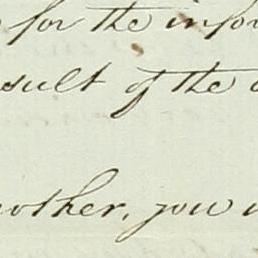 for the infor
sult of the
other, you